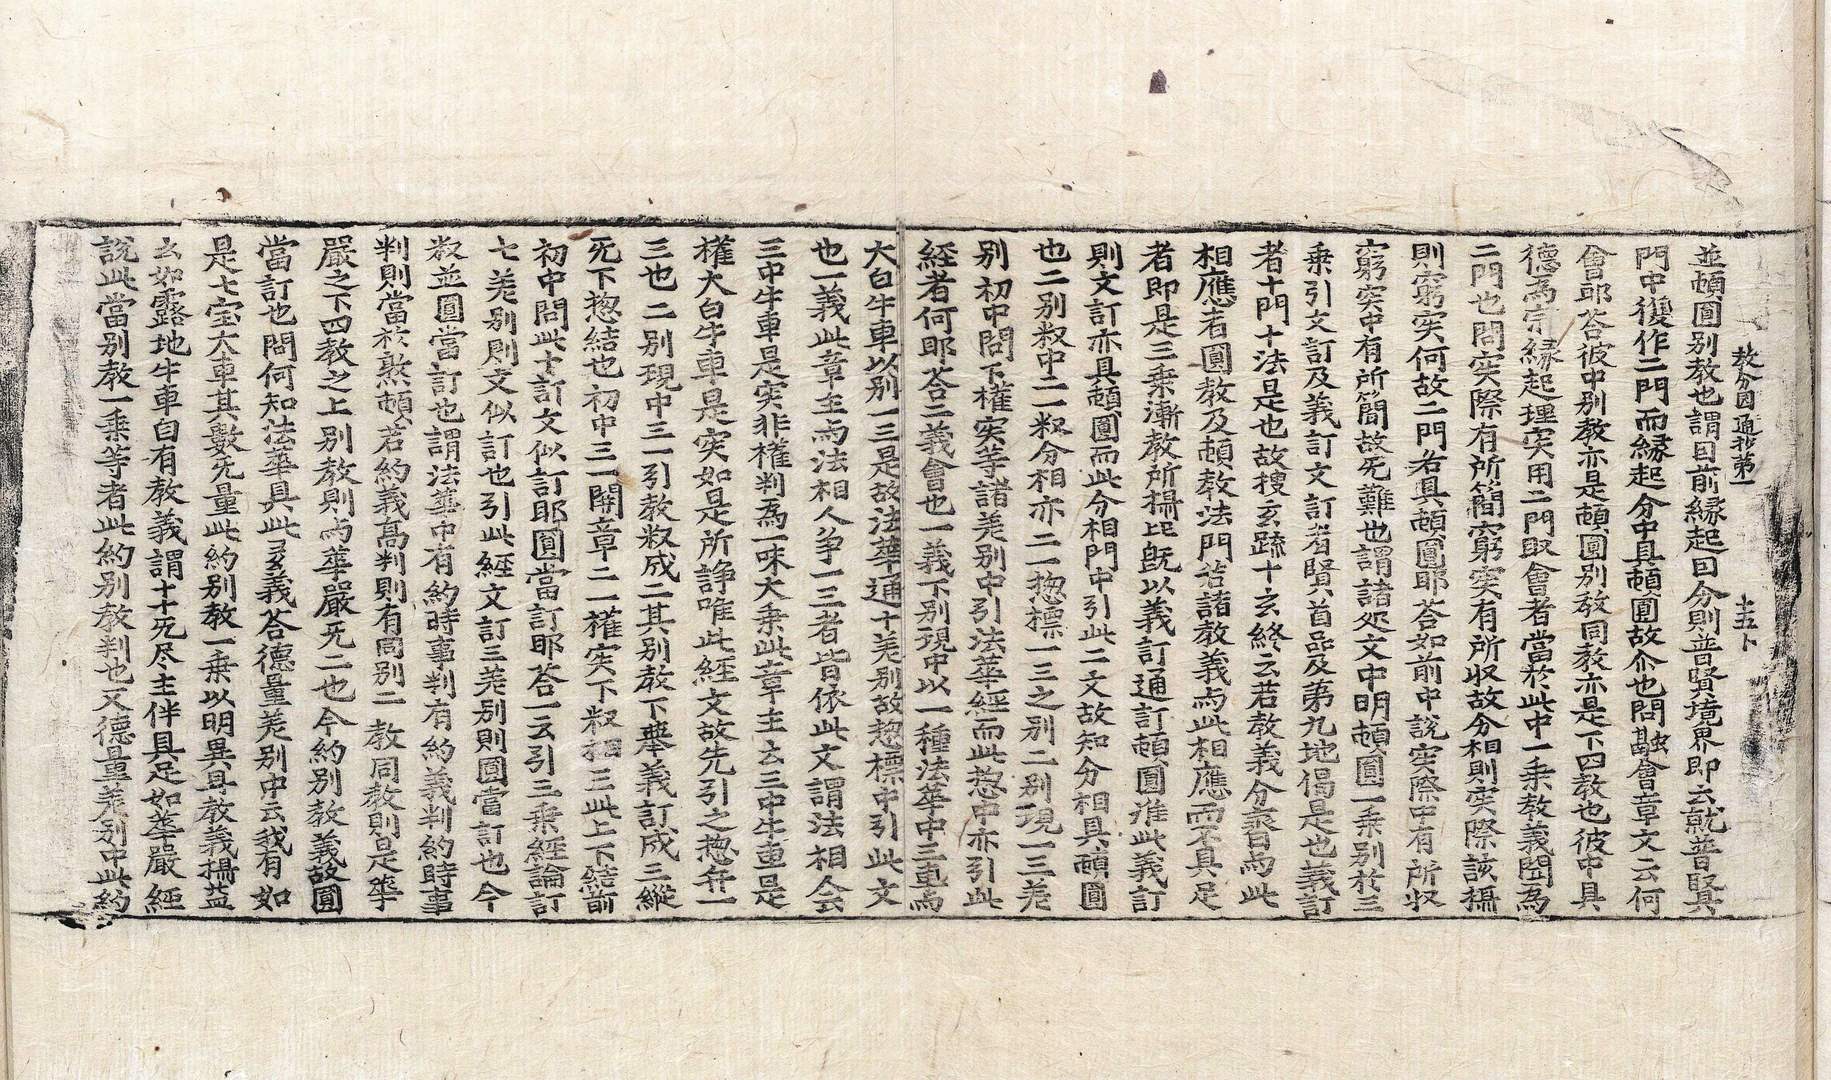 教分圓通抄第一 十五卜
並頓圓別教也謂因前縁起因分則普賢境界即云就普賢具
門中復作二門而縁起分中具頓圓故尒也問融會章文云何
會耶荅彼中別教亦是頓圓別教同教亦是下四教也彼中具
德為宗縁起理实用二門取會者當於此中一乗教義閇為
二門也問实際有所簡窮实有所収故分相則实際該攝
則窮实何故二門各具頓圓耶荅如前中說实際中有所収
窮实中有所簡故旡難也謂諸处文中明頓圓一乗別於三
乗引文訂及義訂文訂者賢首品及第九地偈是也義訂
者十門十法是也故搜玄䟽十玄終云若教義分齊与此
相應者圓教及頓教法門若諸教義与此相應而不具足
者即是三乗漸教所攝此旣以義訂通訂頓圓准此義訂
則文訂亦具頓圓而此分相門中引此二文故知分相具頓圓
也二別叙中二一叙分相亦二一惣標一三之別二別現一三差
別初中問下權实等諸差別中引法華經而此惣中亦引此
經者何耶荅二義會也一義下別現中以一種法華中三車為
大白牛車以別一三是故法華通十差別故惣標中引此文
也一義此章主与法相人爭一三者皆依此文謂法相人云
三中牛車是实非權判為一味大乗此章主云三中牛車是
權大白牛車是实如是所諍唯此經文故先引之惣弁一
三也二別現中三一引教叙成二其別教下擧義訂成三縱
旡下惣結也初中三一開章二一權实下叙相三此上下結前
初中問此十訂文似訂耶圓當訂耶荅一云引三乗經論訂
七差別則文似訂也引此經文訂三差別則圓當訂也今
叙並圓當訂也謂法華中有約時事判有約義判約時事
判則當於熟頓若約義高判則有同別二教同教則是華
嚴之下四教之上別教則与華嚴旡二也今約別教義故圓
當訂也問何知法華具此多義荅德量差別中云我有如
是七宝大車其數旡量此約別教一乗以明異耳教義攝益
云如露地牛車自有教義謂十十旡尽主伴具足如華嚴經
說此當別教一乗等者此約別教判也又德量差別中此約